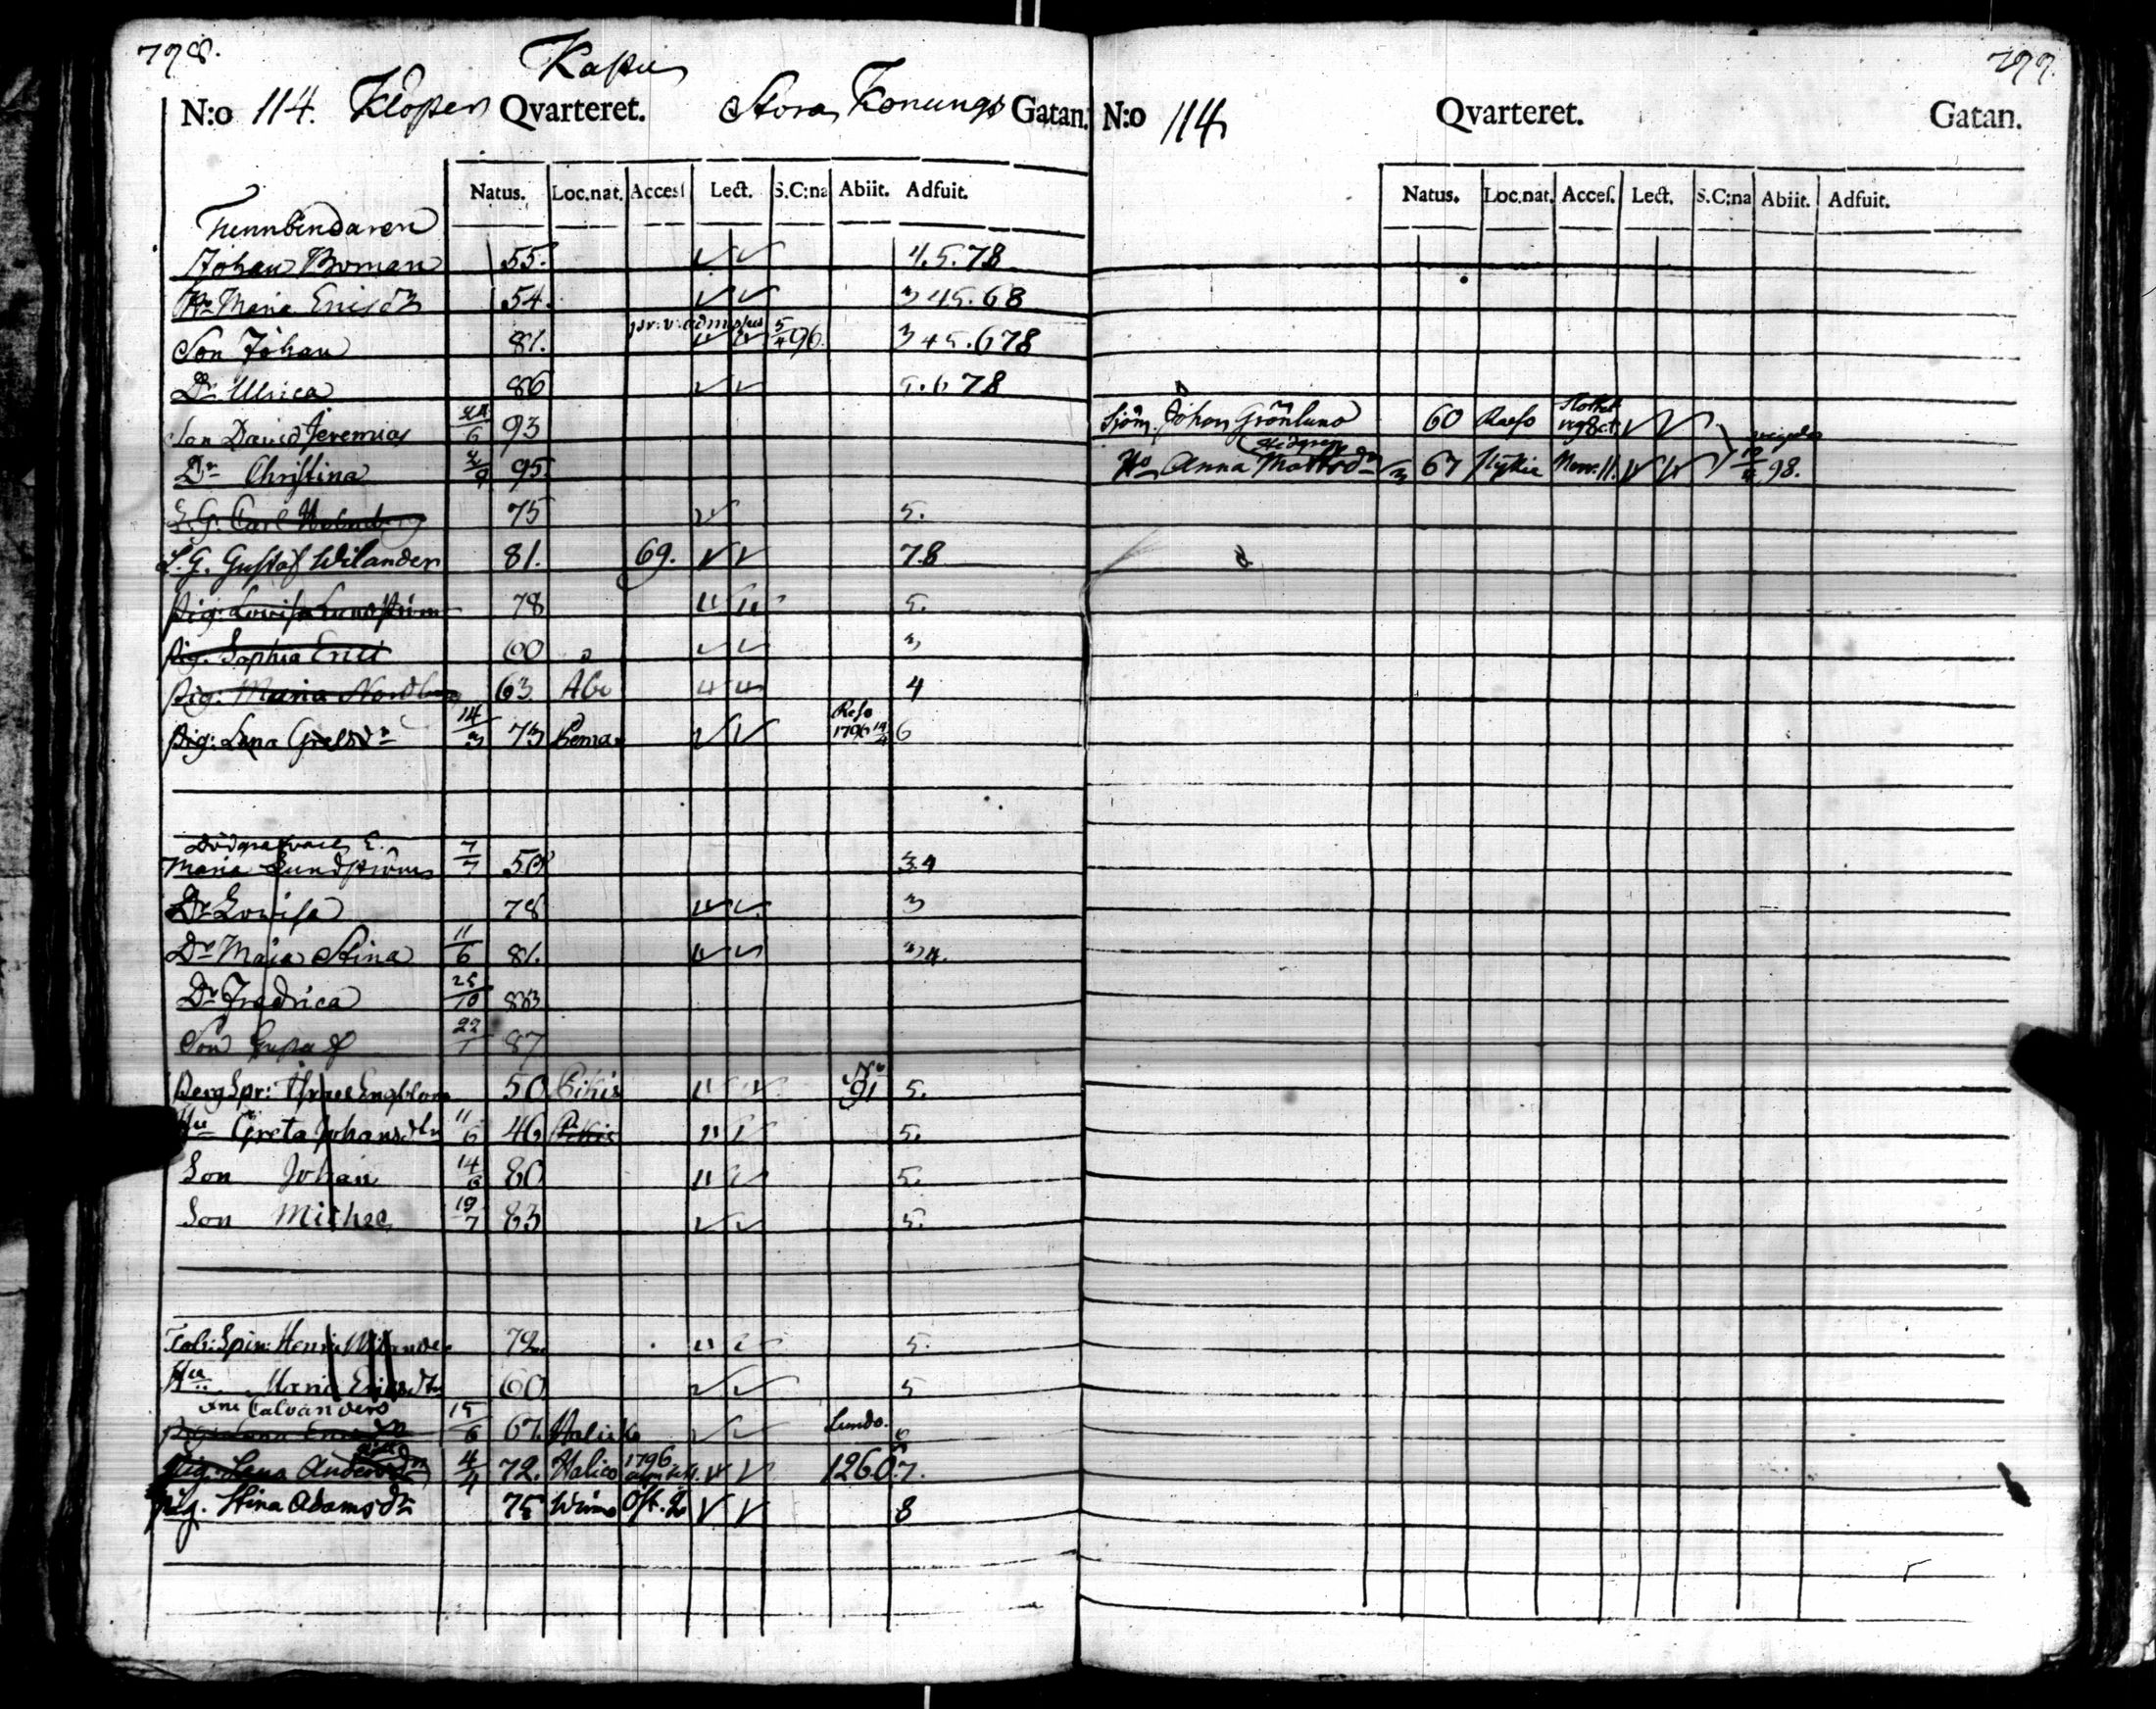 798.
Kapus
N:o 114. Klöpen Qvarteret. Stora Konungs Gatan.
Natus. Loc.nat. Accesſ. Lect. S.C:na Abiit. Adfuit.
Tunnbindaren
Johan Boman 55. 4.5.78
Hu Maria Ericsdr 54. 345.68
Son Johan 81. pr: v: admiss 5/4 96. 345.678
Dr Ulrica 86 5.6 78
Son David Jeremias 6 93
Dr Christina 95.
L.G. Carl Holmberg 75 5.
L.G. Gustaf Wilander 81. 69. 78
Pig: Lovisa Lundström 78 5.
Pig. Sophia Erici 60 3
Pig: Maria Nordberg 63 Åbo 4
Pig: Lena Grelsdr 14/3 73 Pemar Reso 1796 19/4 6
Dödgräfvars E.
Maria Lundström 7/7 50 34
Dr Lovisa 78 3
Dr Maja Stina 11/6 81. 34.
Dr Fredrica 25/10 83
Son Gustaf 22/1 87
BergSpr: Israel Engblom 50 Pikis No 91 5.
Hu Greta Johansdtr 11/6 46 Pikis 5.
Son Johan 14/6 80 5.
Son Michel 19/7 83 5.
Tob: Spin: Henric Wilander 72 5.
Hu Maria Ericsdtr 60 5
Calvanders
15/6 67. Haliko Lundo. 6
Pig: Lena Andersdr 4/4 72. Halico 1796 1260. 7.
Pig. Stina Adamsdr 75 Wirmo 8
799.
N:o 114 Qvarteret. Gatan.
Natus. Loc.nat. Accesſ. Lect. S.C:na Abiit. Adfuit.
Sjöm. Johan Grönlund 60 Slottet
Hu Anna Mattsdr 67 98.